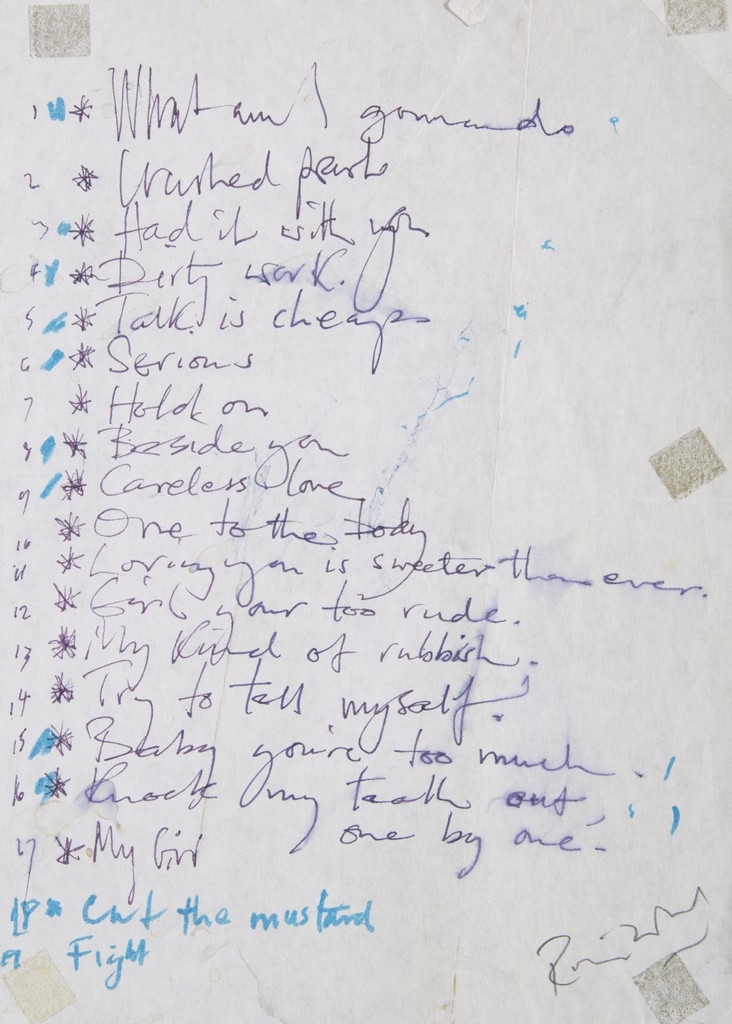 1 * What am I gonna do
2 * Crushed pearl
3 * Had it with you
4 * Dirty work.
5 * Talk is cheap
6 * Serious
7 * Hold on
8 * Beside you
9 * Careless love
10 * One to the body
11 * Loving you is sweeter than ever.
12 * Girl your too rude.
13 * My Kind of rubbish.
14 * Try to tell myself.
15 * Baby you're too much.
16 * Knock my teeth out,
one by one.
17 * My Girl
18 * Cut the mustard
Fight